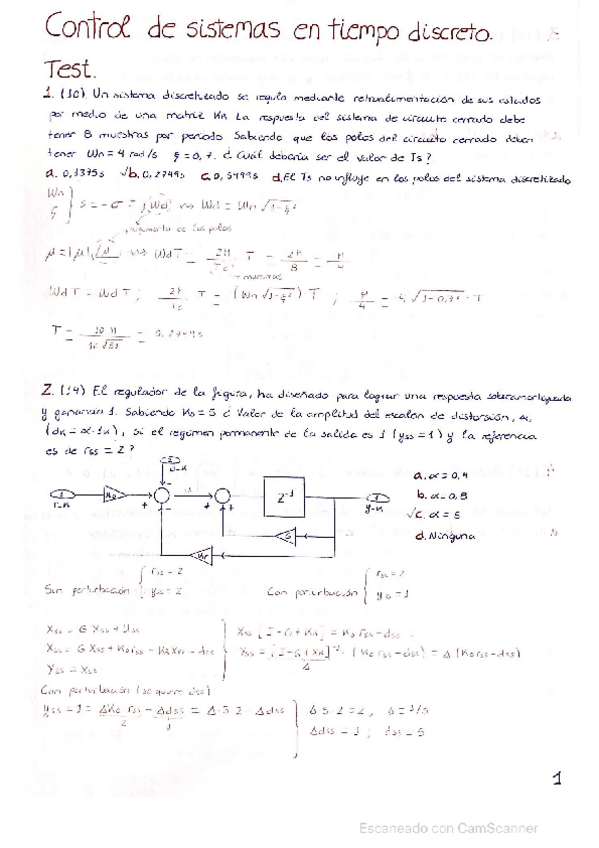 Control de sistemas en tiempo discreto.
Test.
1. (10) Un sistema discretizado se regula mediante retroalimentación de sus estados
por medio de una matriz KR. La respuesta del sistema de circuito cerrado debe
tener 8 muestras por periodo. Sabiendo que los polos del circuito cerrado deben
tener Wn = 4 rad/s ξ = 0,7. ¿Cuál debería ser el valor de Ts?
a. 0,1375s √b. 0,2749s c. 0,5499s d. El Ts no influye en los polos del sistema discretizado
argumento de los polos
muestras
T = = 0,2749s
2. (14) El regulador de la figura, ha diseñado para lograr una respuesta sobreamortiguada
y ganancia 1. Sabiendo K0 = 5 ¿Valor de la amplitud del escalón de distorsión, α,
(dk = α · 1k), si el regimen permanente de la salida es 1 (yss = 1) y la referencia
es de rss = 2?
a. α = 0,4
b. α = 0,8
√c. α = 5
d. Ninguna
Z⁻¹
G
Sin perturbación rss = 2 yss = 2
Con perturbación rss = 2 yss = 1
Xss = G Xss + Uss
Xss = G Xss + K0 rss - KR Xss - dss
Yss = Xss
Xss [I - G + KR] = K0 rss - dss
Xss = [I - G + KR]⁻¹ · (K0 rss - dss) = Δ (K0 rss - dss)
Con perturbación (se quiere dss)
Δ · 5 · 2 = 2, Δ = 1/5
Δdss = 1; dss = 5
1
Escaneado con CamScanner